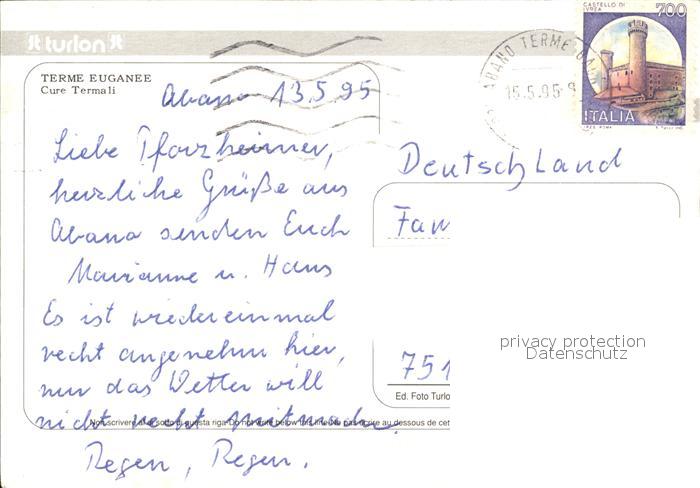 turlon
TERME EUGANEE
Cure Termali
Abano 13.5.95
Liebe Pforzheimer,
herzliche Grüße aus
Abano senden Euch
Marianne u. Hans
Es ist wiedereinmal
recht angenehm hier,
nur das Wetter will
nicht recht mitmachen.
Regen, Regen.
Non scrivere al di sotto di questa riga-Do not write below this line-Ne pas écrire au dessous de cet
ABANO TERME
15.5.95-9
CASTELLO DI
IVREA
700
ITALIA
Deutschland
Fam
751
Ed. Foto Turlo
privacy protection
Datenschutz